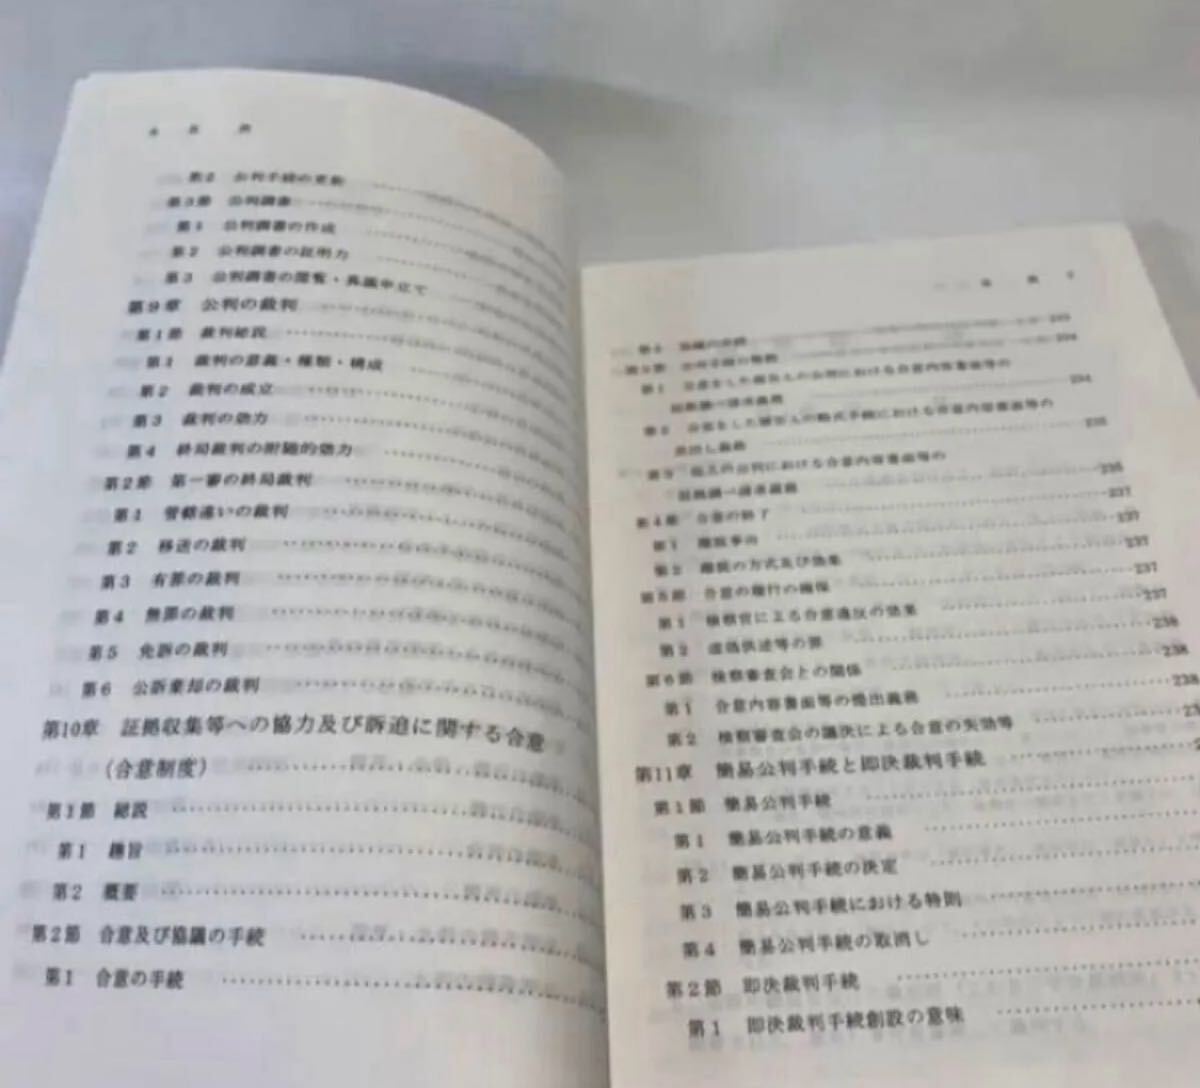 第2 公判手続の更新
第3節 公判調書
第1 公判調書の作成
第2 公判調書の証明力
第3 公判調書の閲覧・異議申立て
第9章 公判の裁判
第1節 裁判総説
第1 裁判の意義・種類・構成
第2 裁判の成立
第3 裁判の効力
第4 終局裁判の附随的効力
第2節 第一審の終局裁判
第1 管轄違いの裁判
第2 移送の裁判
第3 有罪の裁判
第4 無罪の裁判
第5 免訴の裁判
第6 公訴棄却の裁判
第10章 証拠収集等への協力及び訴追に関する合意
(合意制度)
第1節 総説
第1 趣旨
第2 概要
第2節 合意及び協議の手続
第1 合意の手続
234
第1 合意をした被告人の公判における合意内容書面等の
234
235
第3 他人の公判における合意内容書面等の
236
第4節 合意の終了 237
第1 離脱事由 237
第2 離脱の方式及び効果 237
第5節 合意の履行の確保 237
第1 検察官による合意違反の効果 237
第2 虚偽供述等の罪 238
第6節 検察審査会との関係 238
第1 合意内容書面等の提出義務 238
第2 検察審査会の議決による合意の失効等
第11章 簡易公判手続と即決裁判手続
第1節 簡易公判手続
第1 簡易公判手続の意義
第2 簡易公判手続の決定
第3 簡易公判手続における特則
第4 簡易公判手続の取消し
第2節 即決裁判手続
第1 即決裁判手続創設の意味